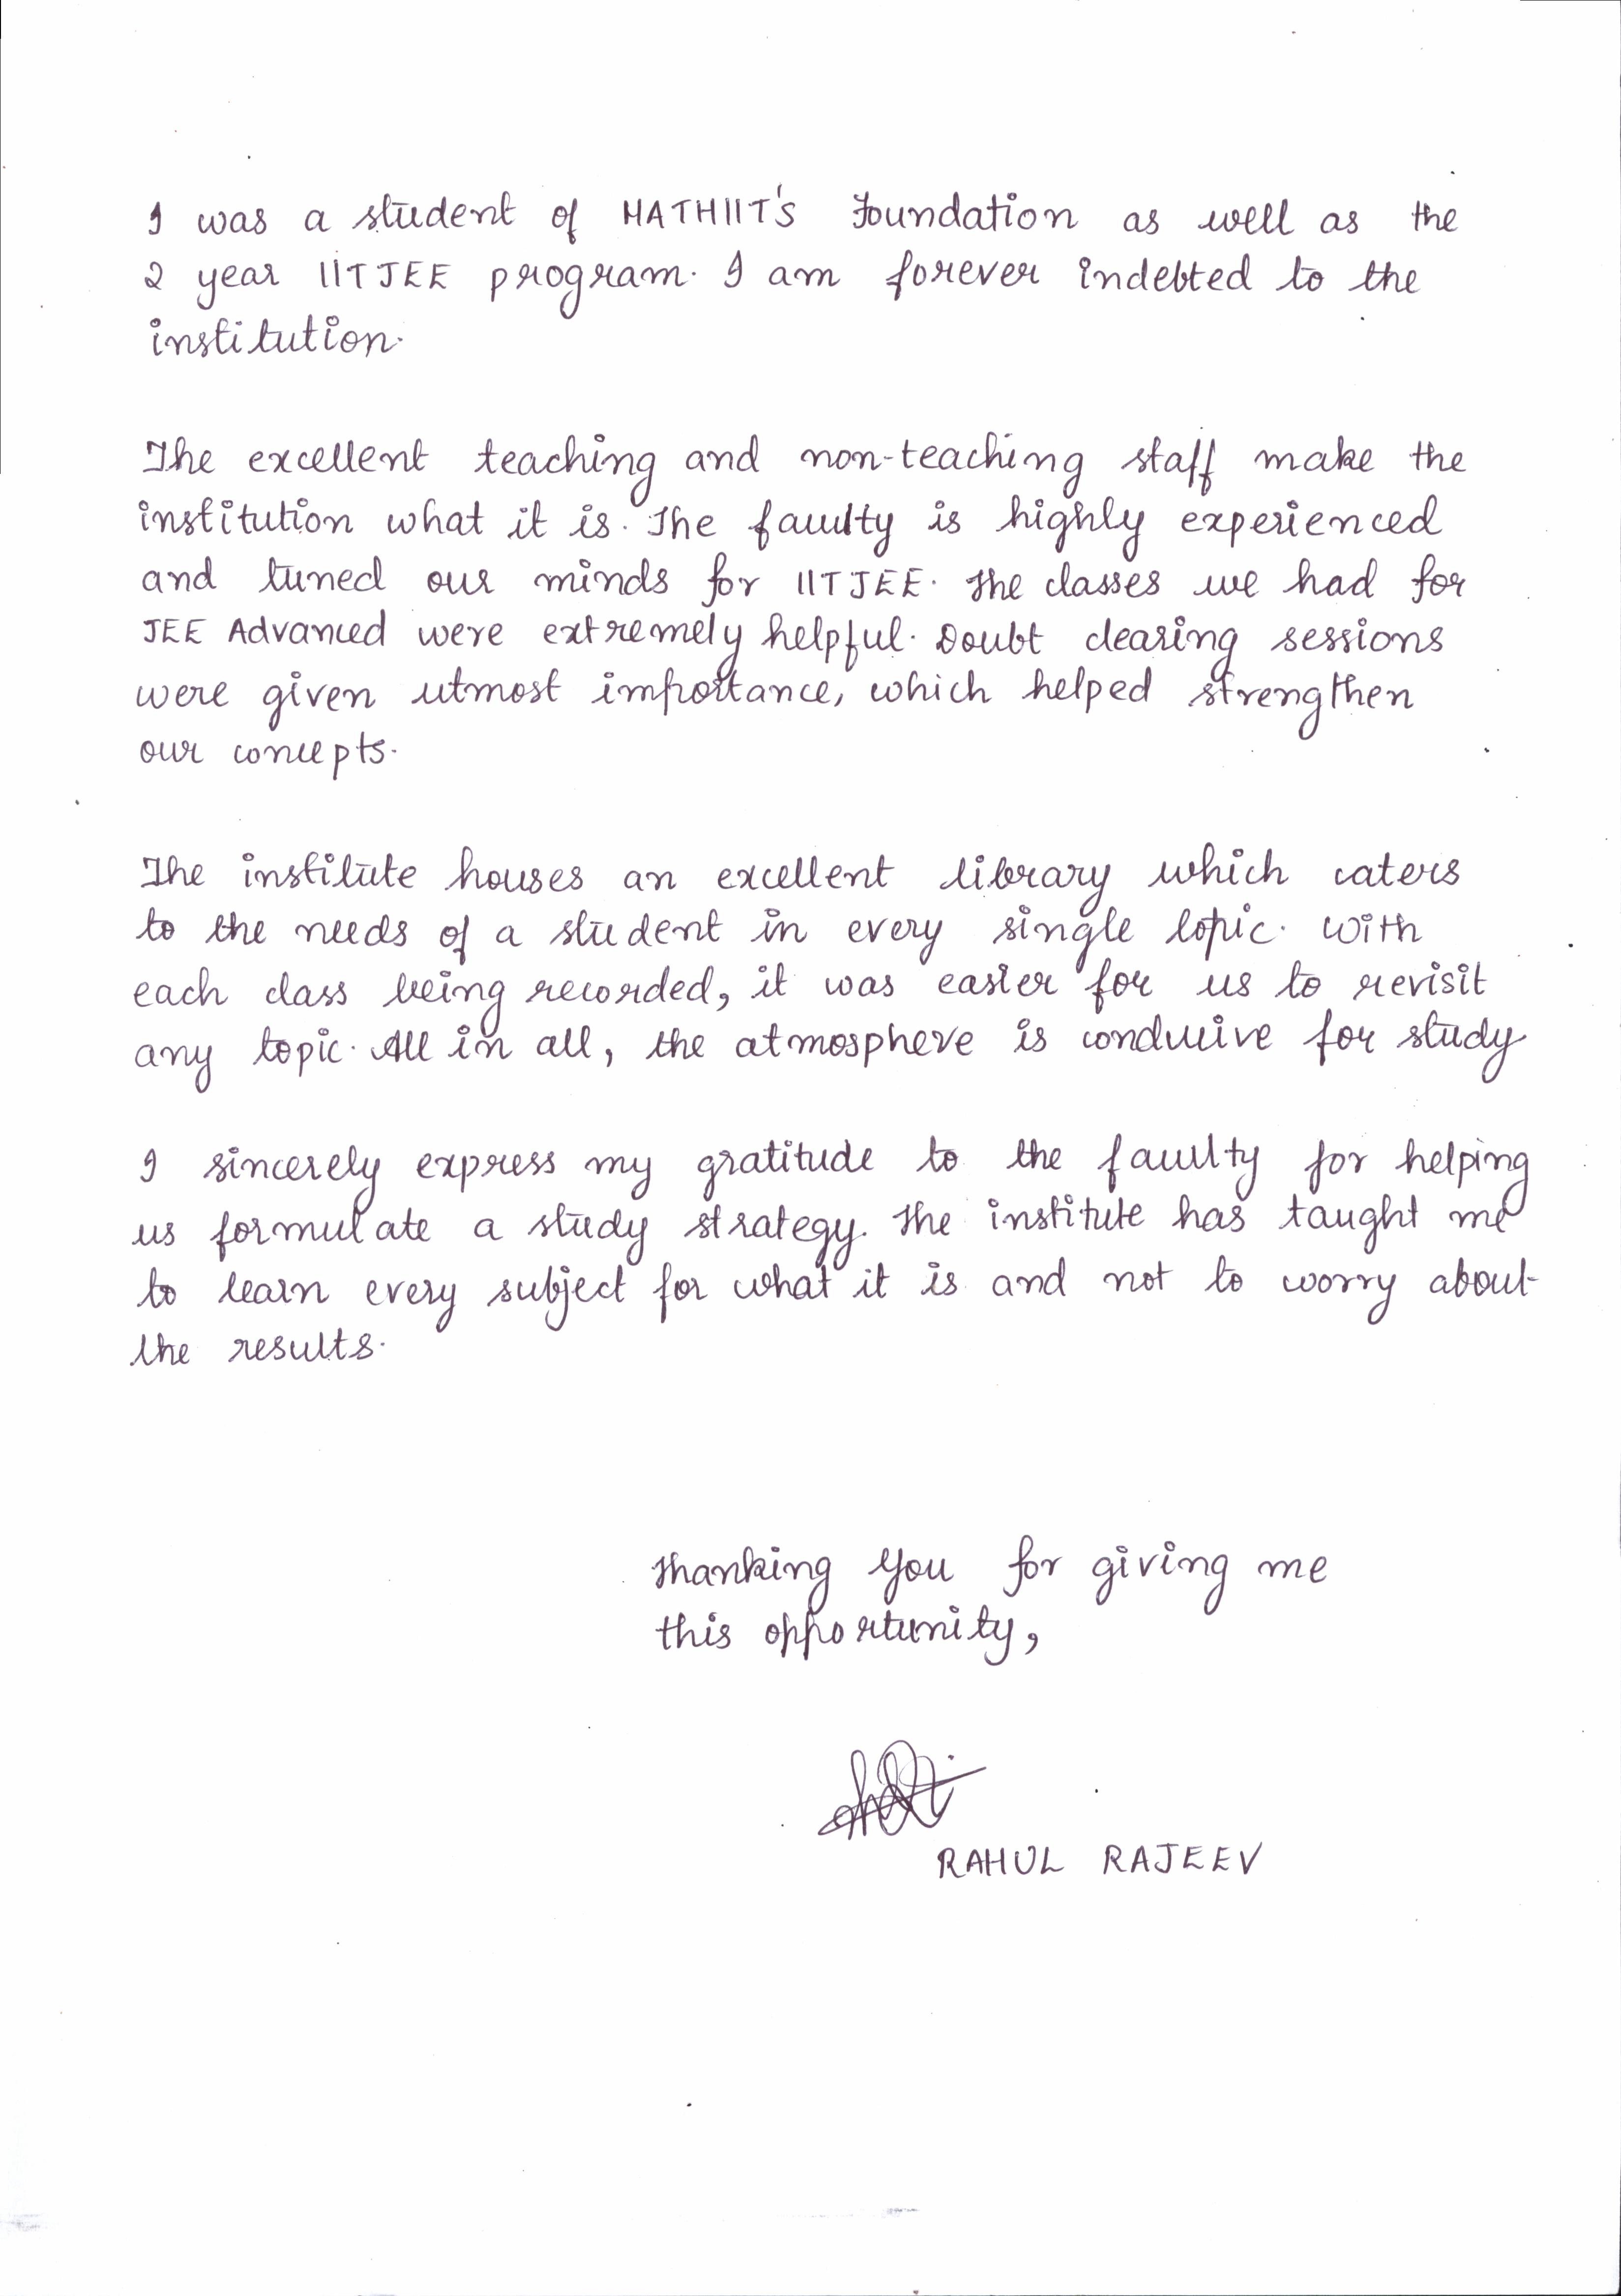 I was a student of MATHIIT'S Foundation as well as the
2 year IITJEE program. I am forever indebted to the
institution.
The excellent teaching and non-teaching staff make the
institution what it is. The faculty is highly experienced
and tuned our minds for IITJEE. The classes we had for
JEE Advanced were extremely helpful. Doubt clearing sessions
were given utmost importance, which helped strengthen
our concepts.
The institute houses an excellent library which caters
to the needs of a student in every single topic. With
each class being recorded, it was easier for us to revisit
any topic. All in all, the atmosphere is conducive for study.
I sincerely express my gratitude to the faculty for helping
us formulate a study strategy. The institute has taught me
to learn every subject for what it is and not to worry about
the results.
Thanking you for giving me
this opportunity,
RAHUL RAJEEV